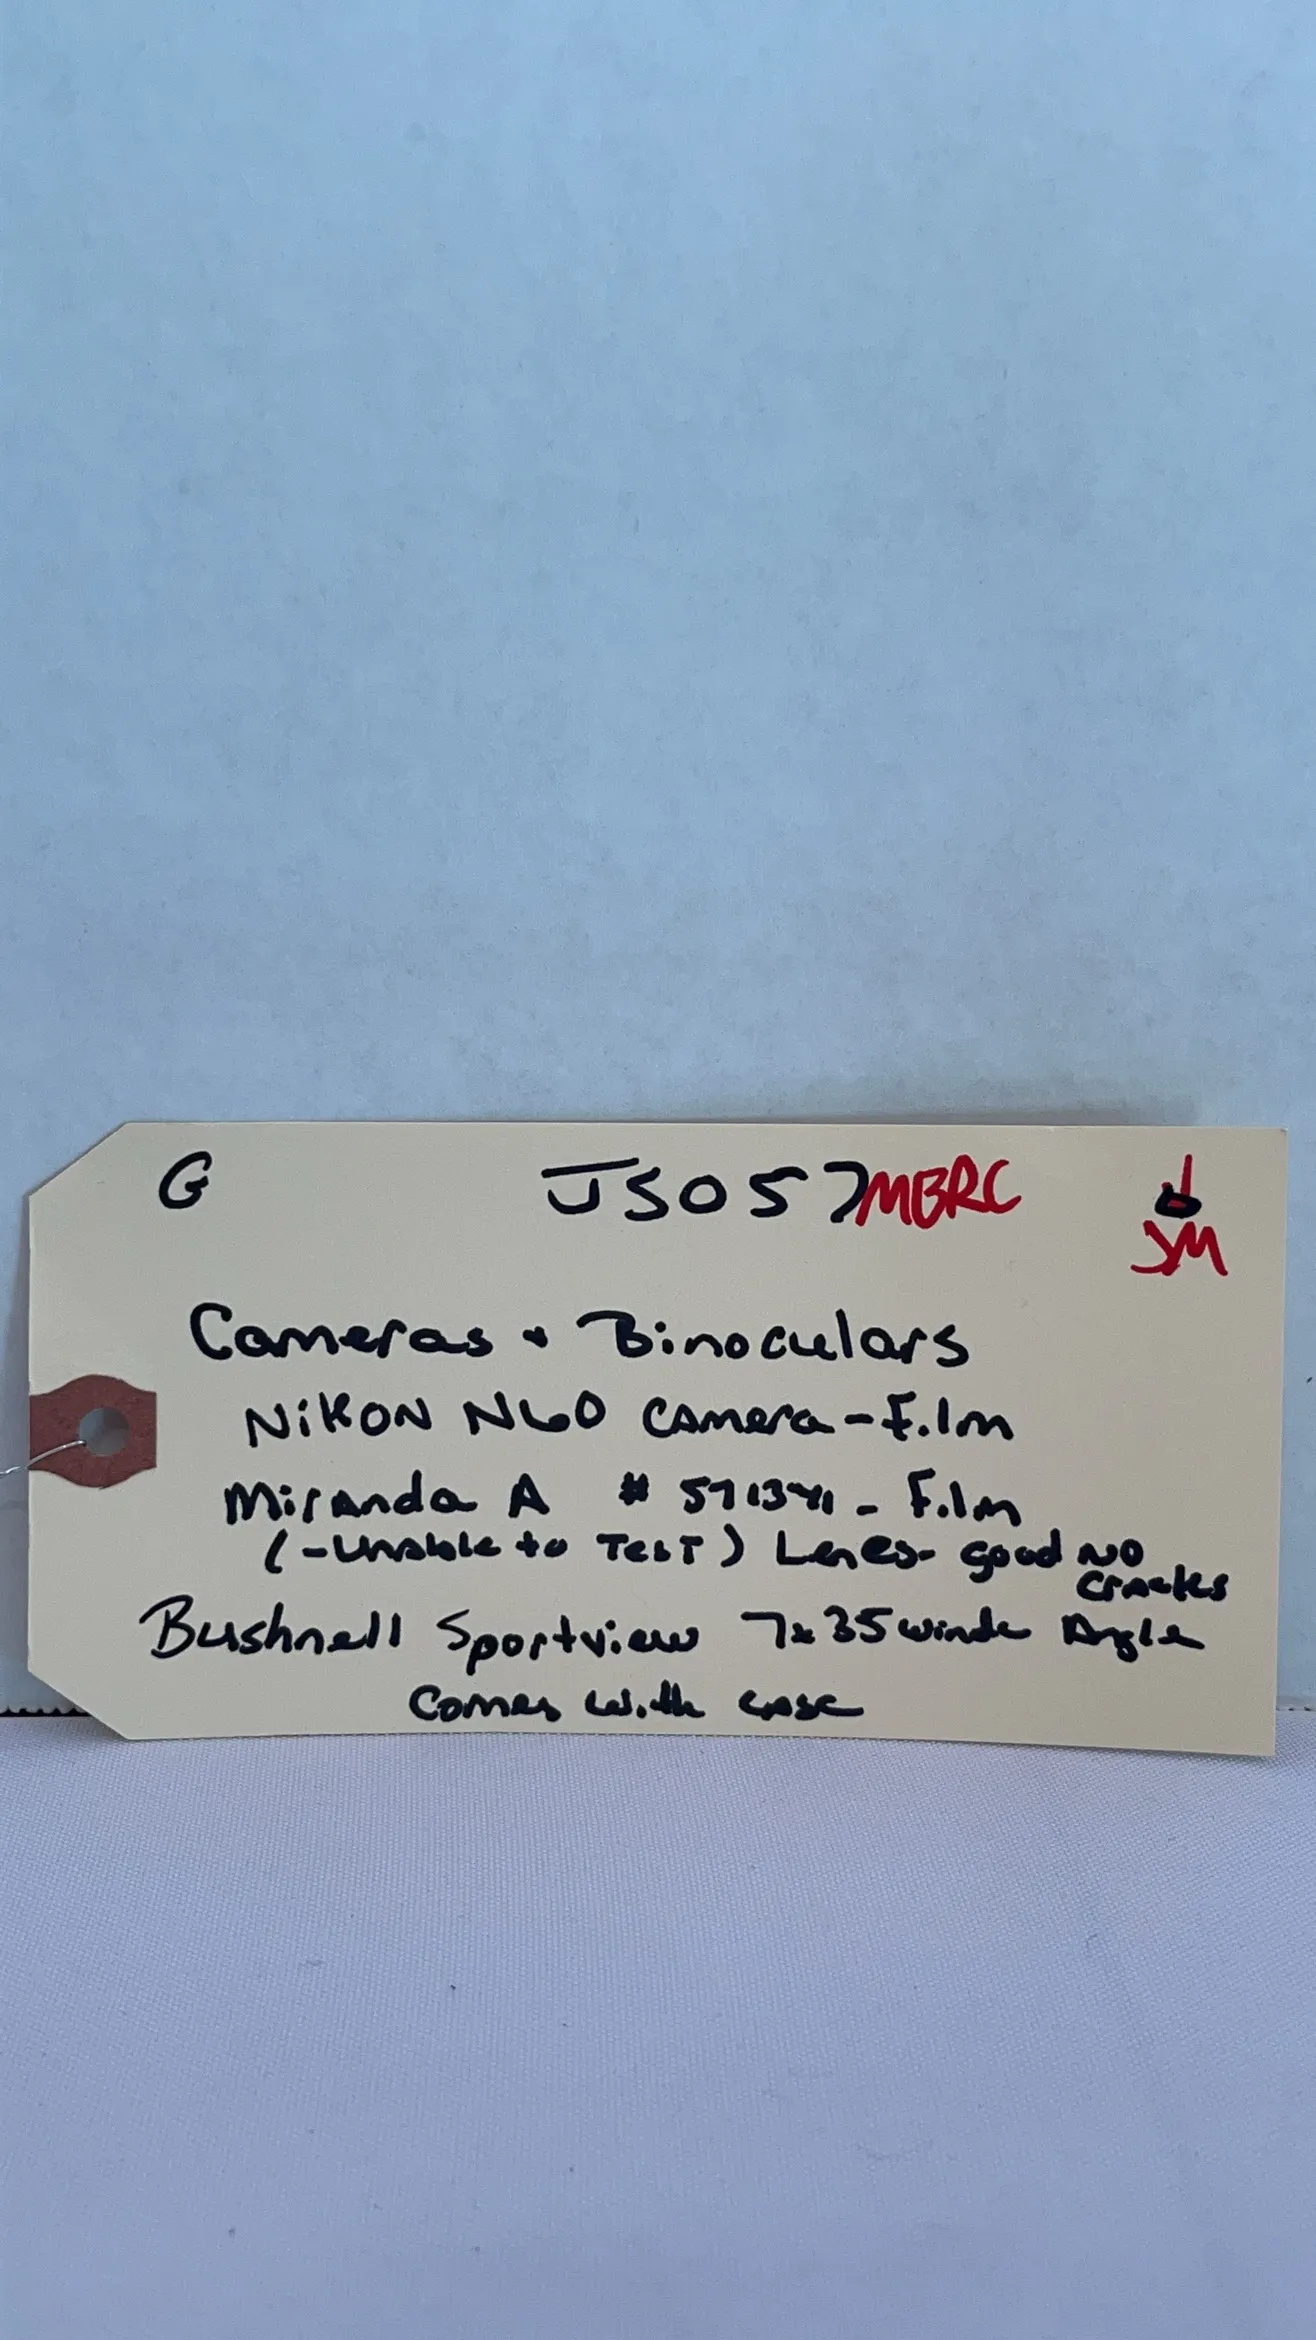 G JS057MBRC
JM
Cameras + Binoculars
Nikon N60 Camera - Film
Miranda A # 571341 - Film
(-Unable to Test) Lenes- good NO
cracks
Bushnell Sportview 7x35 winde Angle
Comes with case